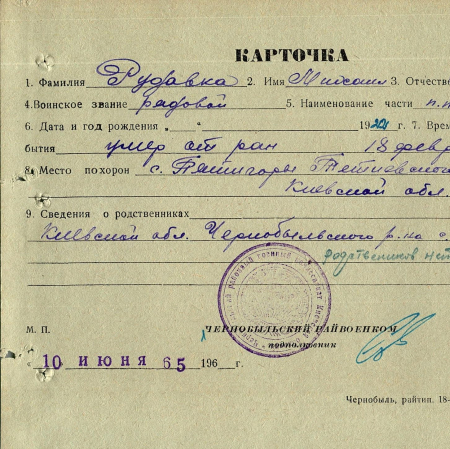 КАРТОЧКА
1. Фамилия Рудавка 2. Имя Михаил 3. Отчеств
4.Воинское звание рядовой 5. Наименование части п.п
6. Дата и год рождения „ “ 1921 г. 7. Врем
бытия умер от ран 18 февр
8. Место похорон с. Пятигоры Тетиевского
Киевской обл.
9. Сведения о родственниках
Киевской обл. Чернобыльского р-на с
родственников нет
М. П.
ЧЕРНОБЫЛЬСКИЙ РАЙВОЕНКОМ
подполковник
„ 10 ИЮНЯ 65 196 г.
Чернобыль, райтип. 18-